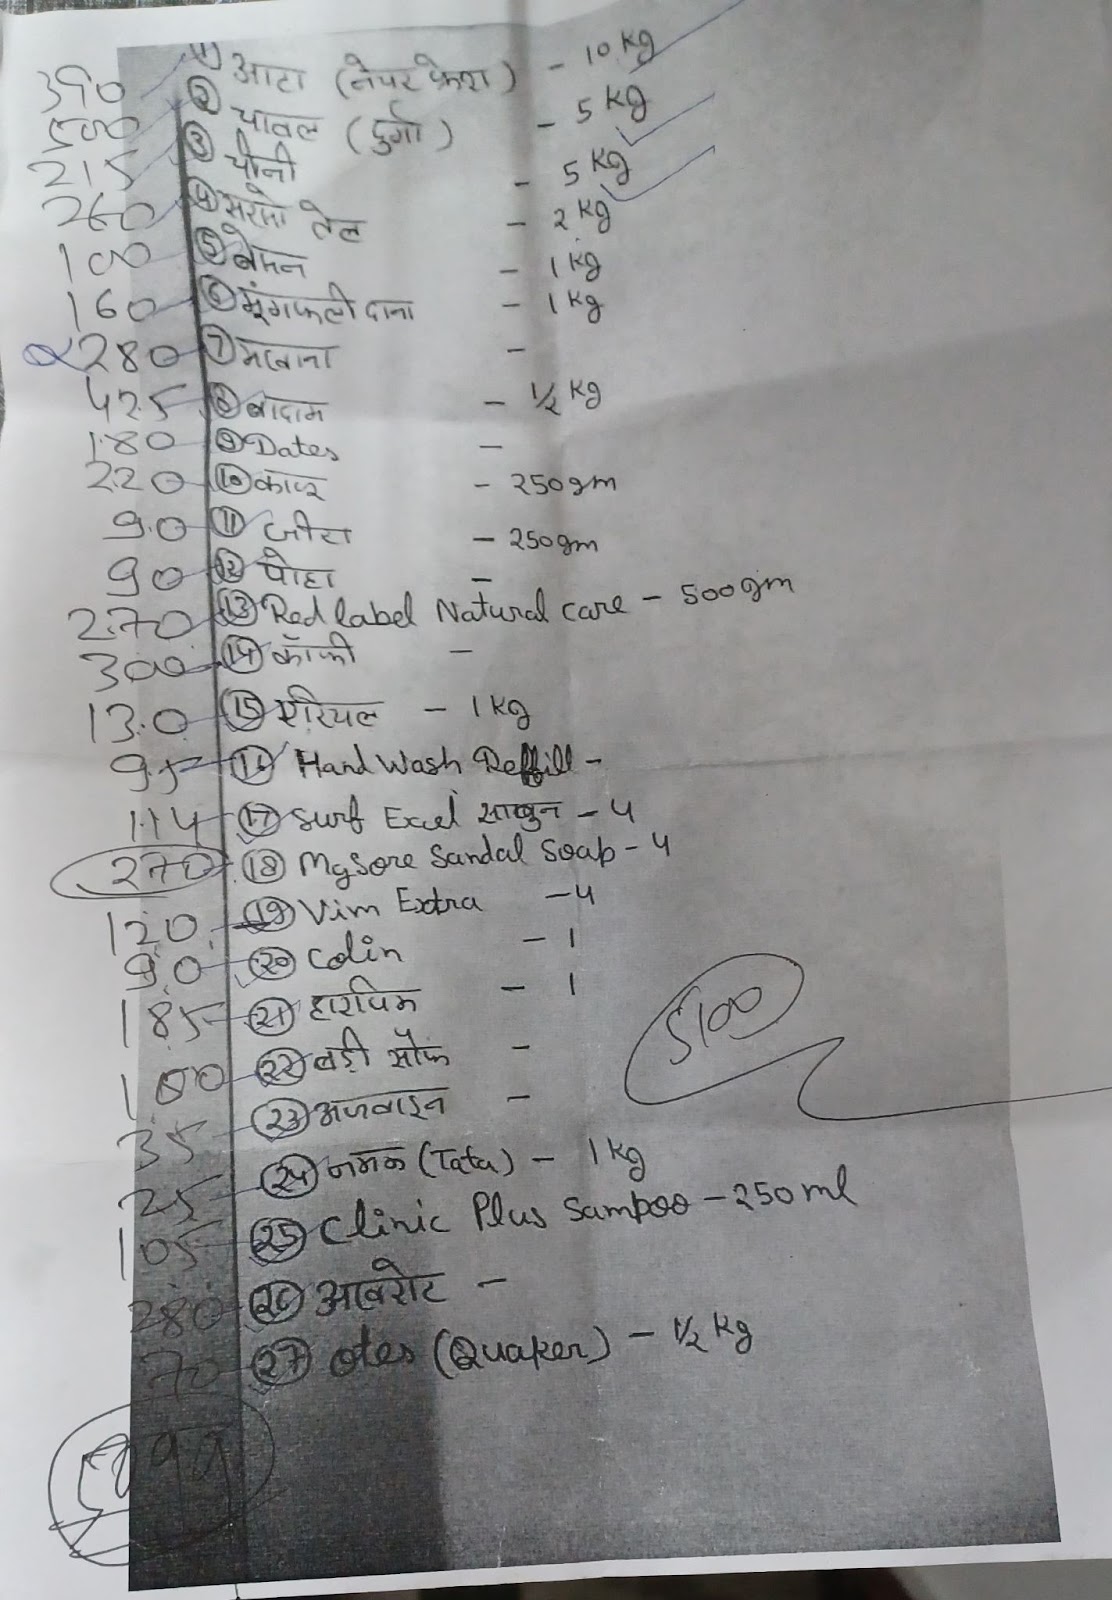 390 1) आटा (नेचर फ्रेश) - 10 kg
500 2 चावल (दुर्गा) - 5 kg
215 3 चीनी - 5 kg
260 4 सरसो तेल - 2 kg
100 5 बेसन - 1 kg
160 6 मूंगफली दाना - 1 kg
280 7 मखाना -
425 8 बादाम - 1/2 kg
180 9 Dates -
220 10 काजू - 250gm
90 11 जीरा - 250gm
90 12 पोहा -
270 13 Red label Natural care - 500gm
300 14 कॉफी -
130 15 एरियल - 1 kg
95 16 Hand Wash Reffill -
114 17 Surf Excel साबुन - 4
270 18 Mysore Sandal Soap - 4
120 19 Vim Extra - 4
90 20 Colin - 1
185 21 हारपिक - 1
100 22 बड़ी सौंफ -
35 23 अजवाइन -
25 24 नमक (Tata) - 1 kg
105 25 Clinic Plus Sampoo - 250 ml
280 26 अखरोट -
70 27 Otes (Quaker) - 1/2 kg
5100